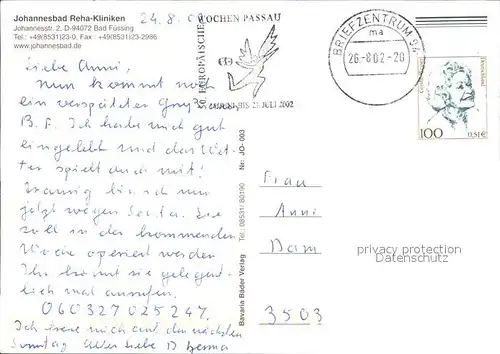 Johannesbad Reha-Kliniken
Johannesstr. 2, D-94072 Bad Füssing
Tel.: +49(8531)23-0, Fax : +49(8531)23-2986
www.johannesbad.de
24.8.02
50. EUROPÄISCHE WOCHEN PASSAU
BIS 21. JULI 2002
BRIEFZENTRUM 94
ma
26.-8.02-20
Deutschland
100
0,51€
Liebe Anni,
nun kommt noch
ein verspäteter Gruß
B. F. Ich habe mich gut
eingelebt und das Wet-
ter spielt auch mit!
Traurig bin ich nur
jetzt wegen Sie
soll in der kommenden
Woche operiert werden
Ihr könnt sie gelegent-
lich mal anrufen.
060327025247.
Ich freue mich auf den nächsten
Sonntag Liebe
Nr. JO-003
Tel.: 08531/80190
Bavaria Bäder Verlag
Frau
Anni
Dam
3503
privacy protection
Datenschutz